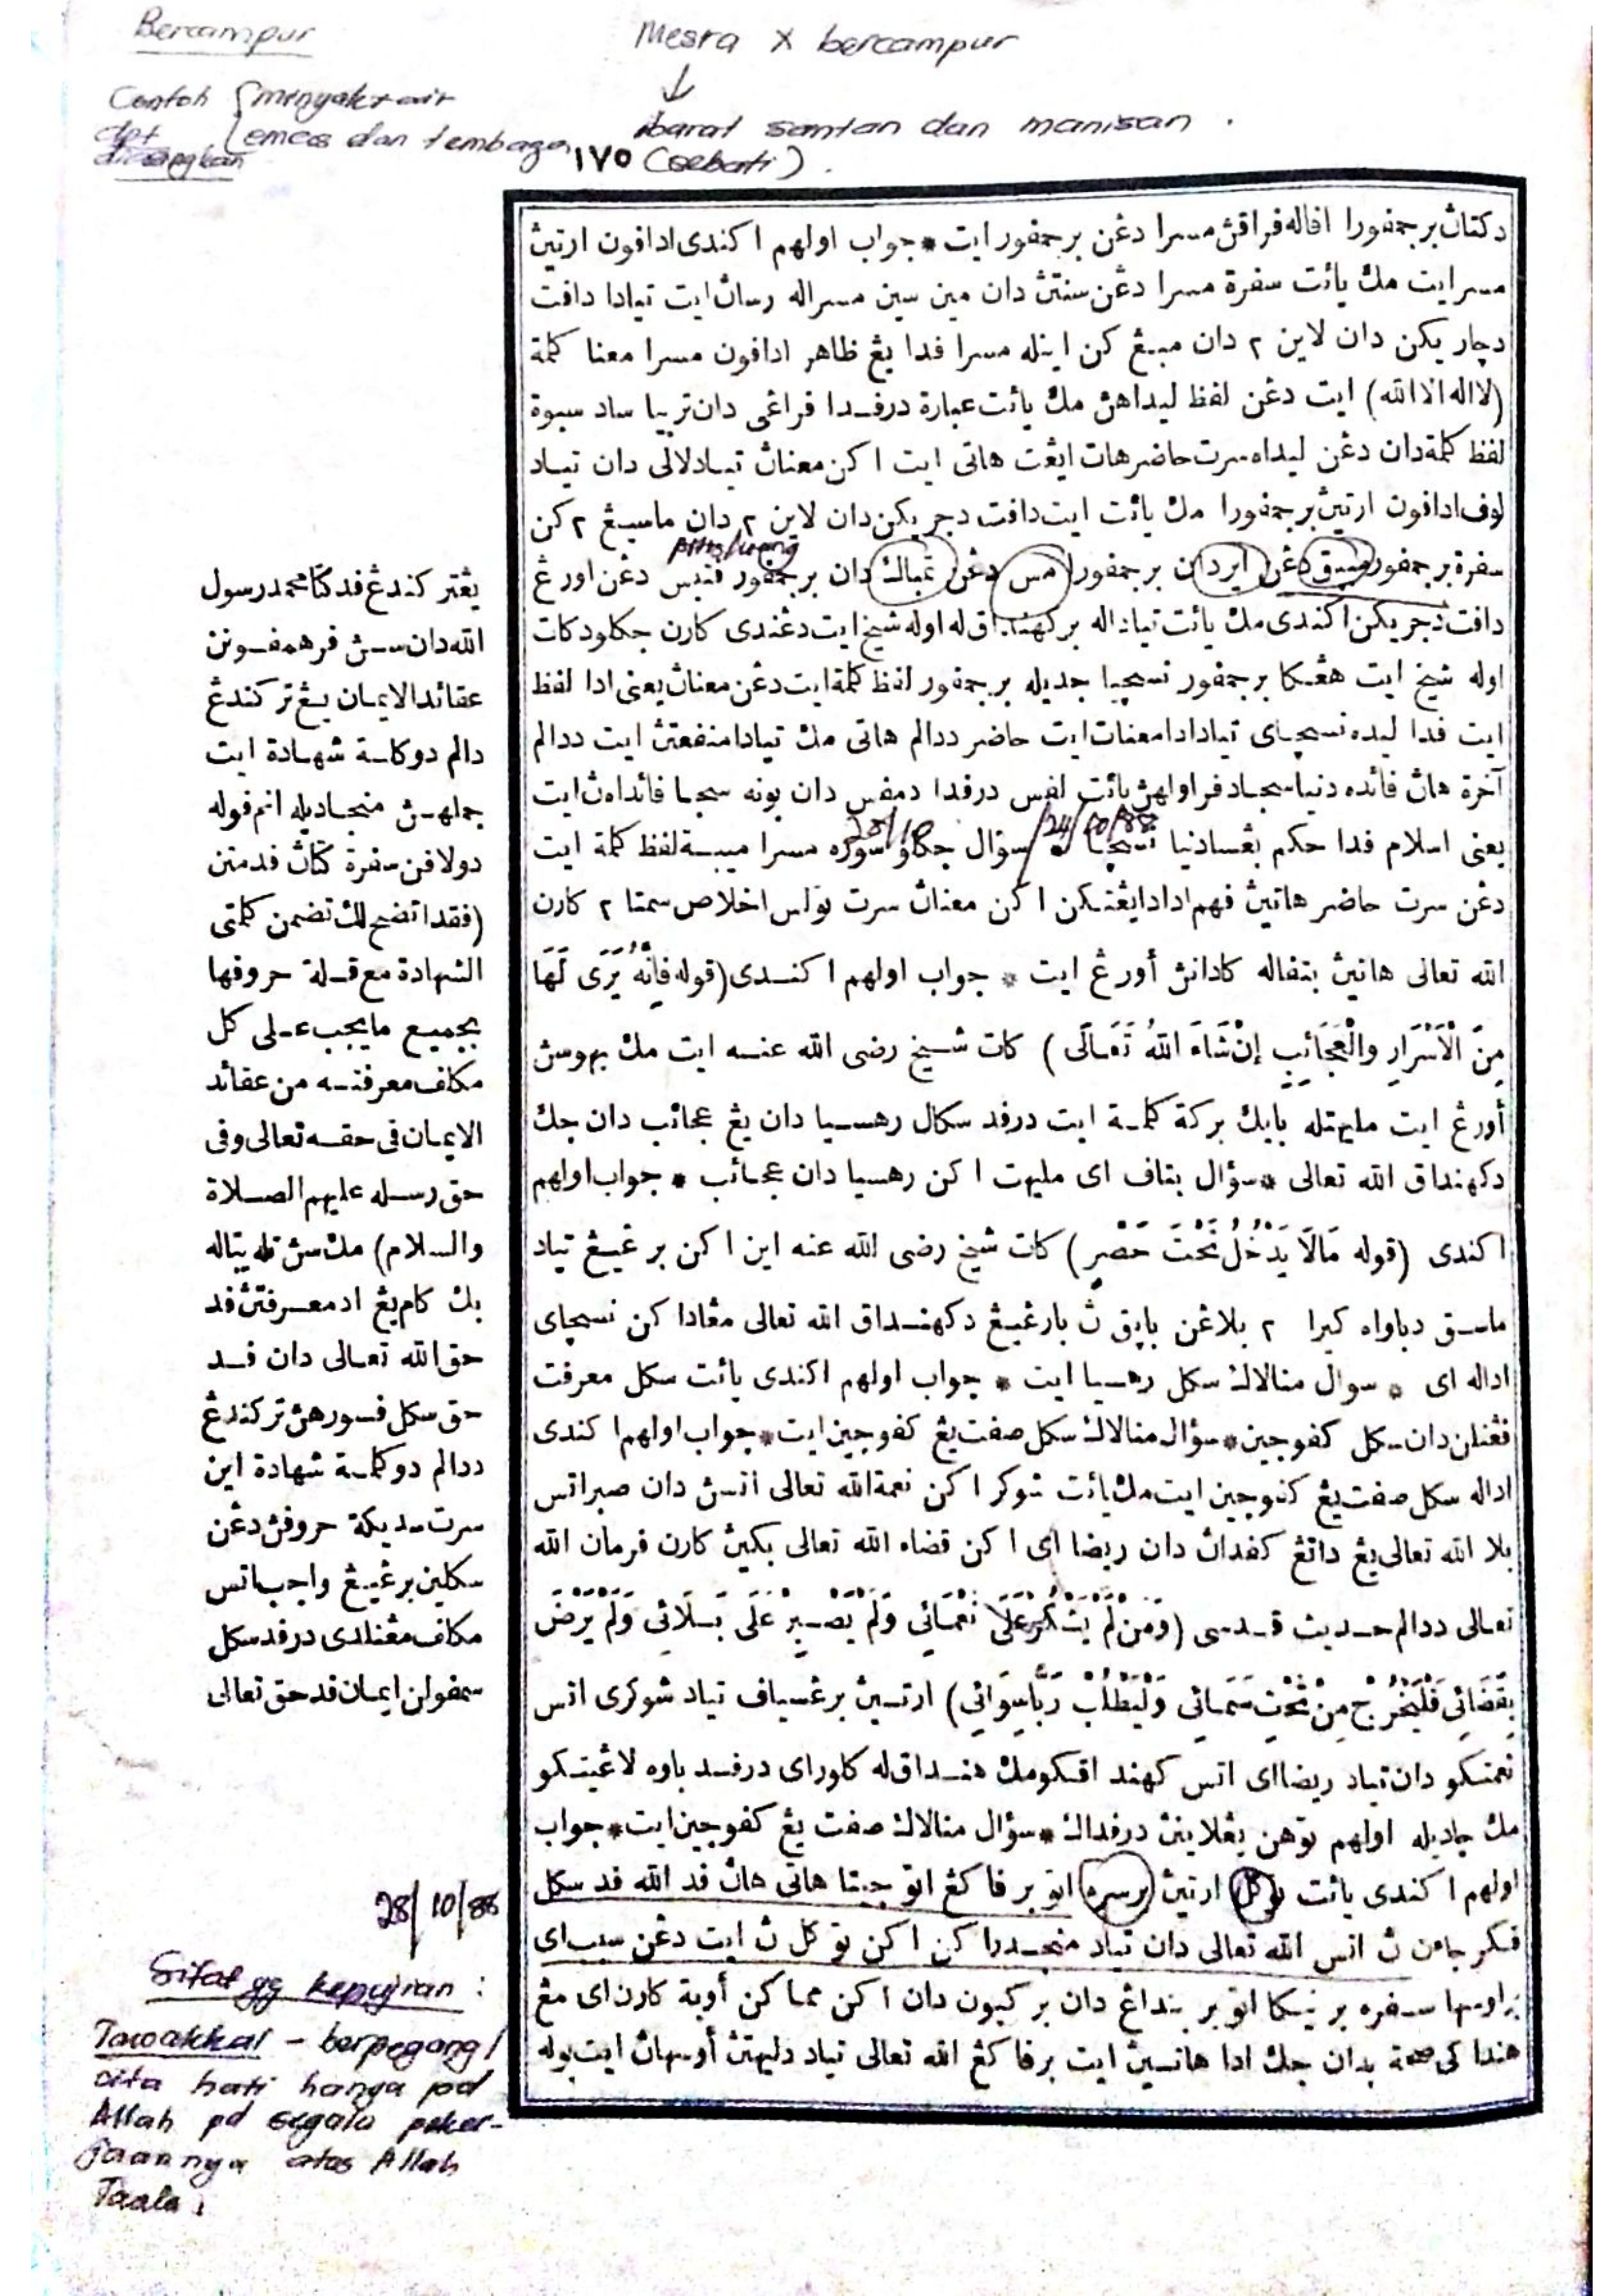 Bercampur
Contoh { minyak & air
dpt { emas dan tembaga
diasingkan
Mesra X bercampur
↓
ibarat santan dan manisan .
(sebati) .
١٧٥
دكتاڽ برچمفورا افاله فراقڽ مسرا دغن برچمفور ايت * جواب اولهم اكندى ادافون ارتيڽ
مسر ايت مك يائت سفرة مسرا دغن سنتڽ دان مين سين مسراله رساڽ ايت تيادا دافت
دچاريكن دان لاين ٢ دان مبڠ كن اينله مسرا فدا يڠ ظاهر ادافون مسرا معنا كلمة
(لا اله الا الله) ايت دغن لفظ ليداهڽ مك يائت عبارة درفدا فراغى دان تربيا ساد سبوة
لفظ كلمة دان دغن ليداه سرت حاضر هات ايڠت هاتى ايت اكن معناڽ تياد لالى دان تياد
لوف ادافون ارتيڽ برچمفورا مك يائت ايت دافت دچريكن دان لاين ٢ دان ماسيڠ ٢ كن
pitis/wang
سفرة برچمفور ميبق دغن اير دان برچمفورا مس دغن تمباك دان برچمفور فتيس دغن اورڠ
دافت دچريكن اكندى مك يائت تيادا له بركهنداق له اوله شيخ ايت دغندى كارن جكلو دكات
اوله شيخ ايت هڠكا برچمفور نسچيا جديله برچمفور لفظ كلمة ايت دغن معناڽ يعنى ادا لفظ
ايت فدا ليده نسچياى تيادا دا معنات ايت حاضر ددالم هاتى مك تيادا منفعتڽ ايت ددالم
آخرة هاڽ فائده دنيا سهجاد فراولهڽ يائت لفس درفدا دمفس دان بونه سهجا فائداهڽ ايت
25/10 24/10/88
يعنى اسلام فدا حكم بڠسا دنيا نسچيا له * سؤال جكالو سوده مسرا ميبة لفظ كلمة ايت
دغن سرت حاضر هاتيڽ فهم ادادايڠتكن اكن معناڽ سرت تولس اخلاص سمتا ٢ كارن
الله تعالى هاتيڽ بتفاله كاداڽ أورڠ ايت * جواب اولهم اكندى (قوله فَإِنَّهُ يَرَى لَهَا
مِنَ الْأَسْرَارِ وَالْعَجَائِبِ إِنْ شَاءَ اللهُ تَعَالَى) كات شيخ رضى الله عنه ايت مك بهوسڽ
أورڠ ايت مليهتله بايك بركة كلمة ايت درفد سكال رهسيا دان يڠ عجائب دان جك
دكهنداق الله تعالى * سؤال بتاف اى مليهت اكن رهسيا دان عجائب * جواب اولهم
اكندى (قوله مَالَا يَدْخُلُ تَحْتَ حَصْرٍ) كات شيخ رضى الله عنه اين اكن برغيڠ تياد
ماسق دباواه كيرا ٢ بلاغن بايق ڽ بارغيڠ دكهنداق الله تعالى مڠادا كن نسچياى
اداله اى * سوال منالاك سكل رهسيا ايت * جواب اولهم اكندى يائت سكل معرفت
فڠنلن دان سكل كفوجين * سؤال منالاك سكل صفت يڠ كفوجين ايت * جواب اولهم اكندى
اداله سكل صفت يڠ كفوجين ايت مك يائت شوكر اكن نعمة الله تعالى اتسڽ دان صبر اتس
بلا الله تعالى يڠ داتڠ كفداڽ دان ريضا اى اكن قضاء الله تعالى بكيڽ كارن فرمان الله
تعالى ددالم حديث قدسى (وَمَنْ لَمْ يَشْكُرْ عَلَى نَعْمَائِي وَلَمْ يَصْبِرْ عَلَى بَلَائِي وَلَمْ يَرْضَ
بِقَضَائِي فَلْيَخْرُجْ مِنْ تَحْتِ سَمَائِي وَلْيَطْلُبْ رَبًّا سِوَائِي) ارتيڽ برغسياف تياد شوكرى اتس
نعمتكو دان تياد ريضااى اتس كهند اقكو مك هنداق له كلوراى درفد باوه لاڠيتكو
مك چاديله اولهم توهن يڠلاينڽ درفداك * سؤال منالاك صفت يڠ كفوجين ايت * جواب
اولهم اكندى يائت توكل ارتيڽ برسره اتو برفاكڠ اتو چيتا هاتى هاڽ فد الله فد سكل
فكرجاءن ڽ اتس الله تعالى دان تياد منچدرا كن اكن توكل ڽ ايت دغن سبب اى
براوسها سفره برنيكا اتو بربنداڠ دان بركبون دان اكن مماكن أوبة كارن اى مڠ
هنداكى صحة بدان جك ادا هاتيڽ ايت برفاكڠ الله تعالى تياد دليهتڽ أوسهاڽ ايت بوله
يڠتر كندڠ فد كتا محمد رسول
الله دان سڽ فرهمفونن
عقائد الايمان يڠ تركندڠ
دالم دو كلمة شهادة ايت
جملهڽ منجاديله انم فوله
دولافن سفرة كتاڽ فد متن
(فقد اتضح لك تضمن كلمتى
الشهادة مع قلة حروفها
بجميع ما يجب على كل
مكلف معرفته من عقائد
الايمان فى حقه تعالى وفى
حق رسله عليهم الصلاة
والسلام) مك سڽ ته ڽتاله
بك كام يڠ اد معرفتڽ فد
حق الله تعالى دان فد
حق سكل فسورهڽ تركندڠ
ددالم دو كلمة شهادة اين
سرت سديكة حروفڽ دغن
سكلين برغيڠ واجب اتس
مكلف مڠنلدى درفد سكل
سمفولن ايمان فد حق تعالى
28/10/88
Sifat yg kepujian :
Tawakkal - berpegang/
cita hati hanya pd
Allah pd segala peker-
jaannya atas Allah
Taala.